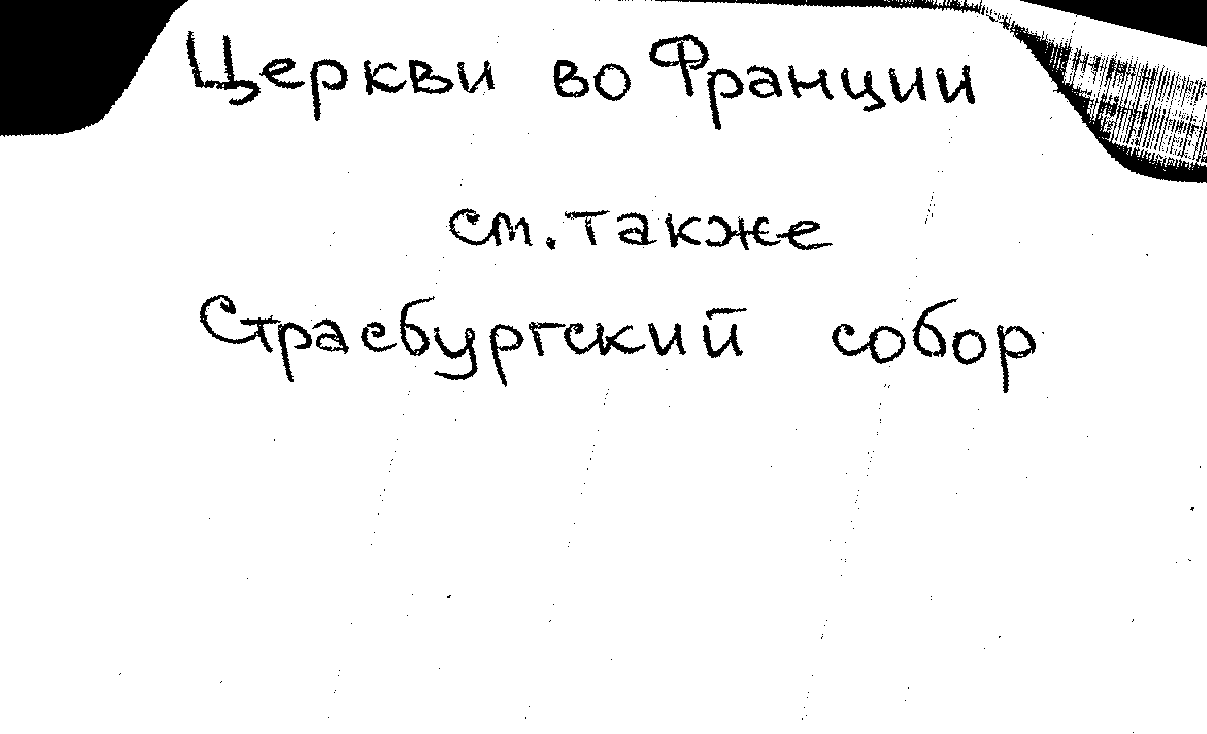 Церкви во Франции
см. также
Страсбургский собор